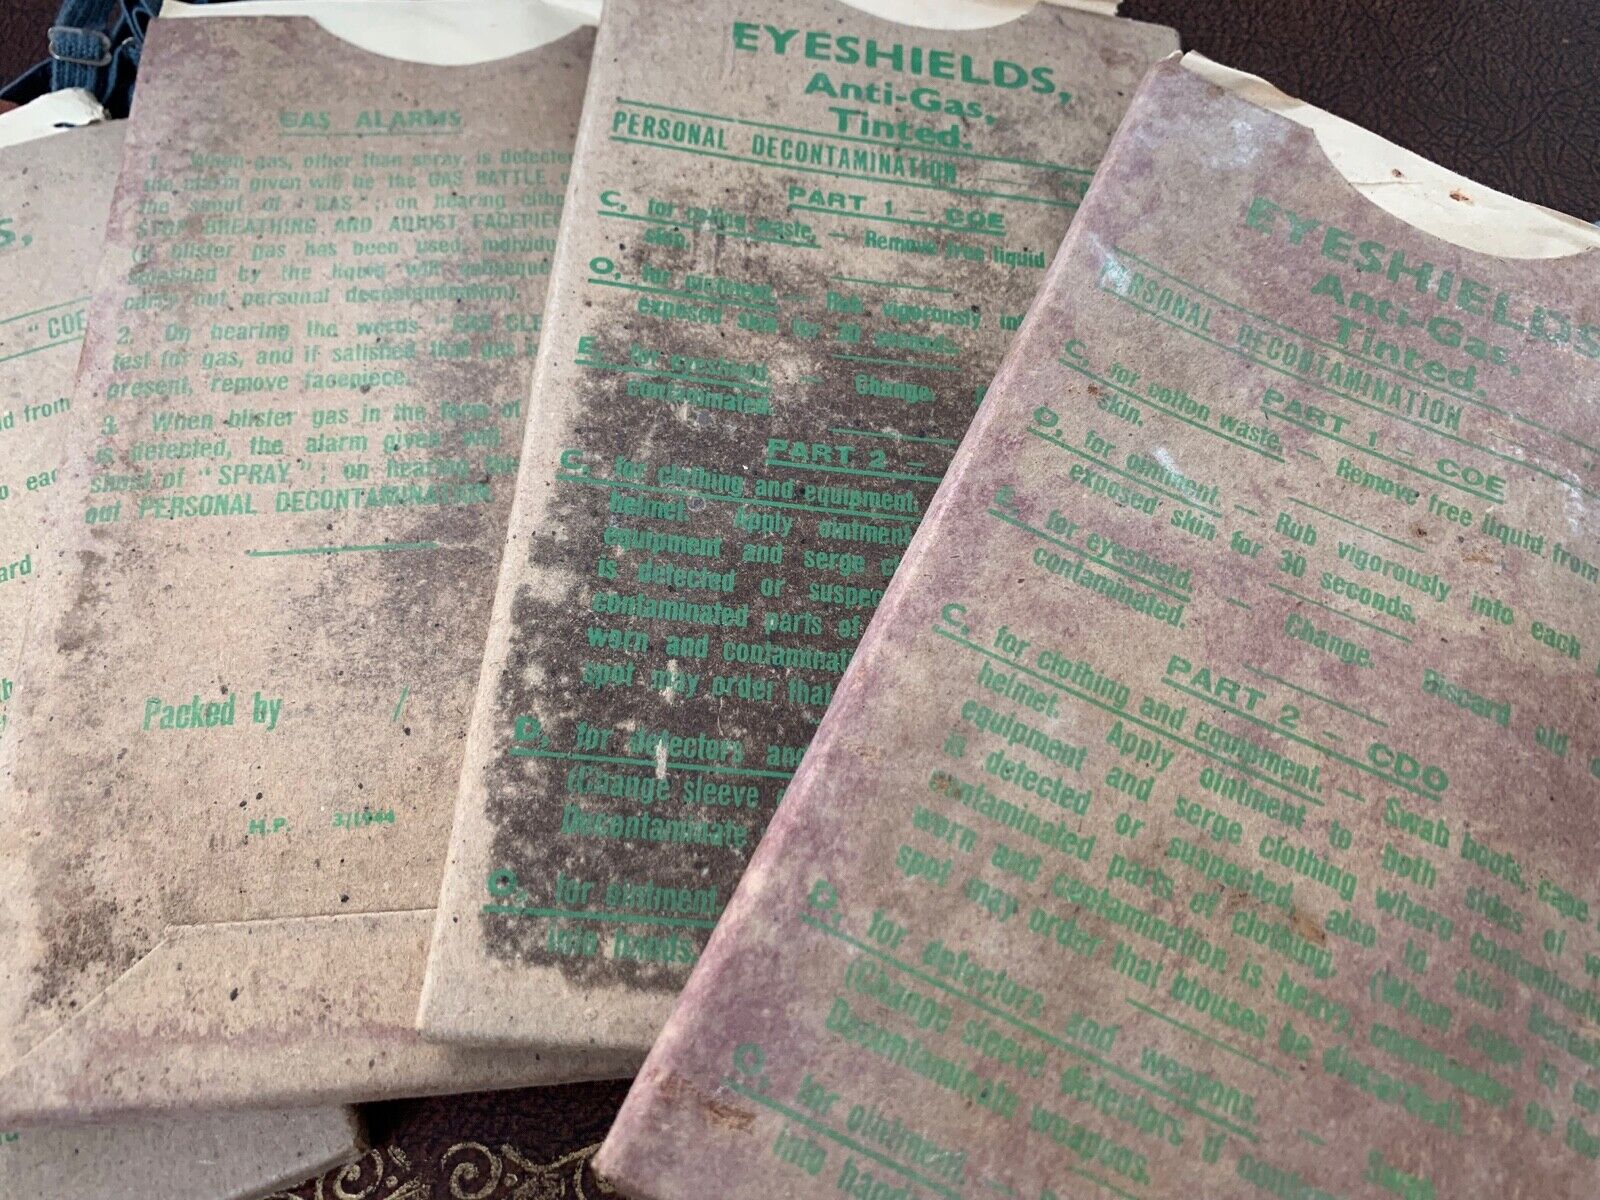 S,
"COE
d from
o eac
ard
GAS ALARMS
1. When gas, other than spray, is detected
the alarm given will be the GAS RATTLE
the shout of "GAS"; on hearing eith
STOP BREATHING AND ADJUST FACEPIE
(If blister gas has been used, individu
splashed by the liquid will subseque
carry out personal decontamination).
2. On hearing the words "GAS CLE
test for gas, and if satisfied that gas
present, remove facepiece.
3. When blister gas in the form of
is detected, the alarm given will
shout of "SPRAY"; on hearing the
out PERSONAL DECONTAMINATION
Packed by /
H.P. 3/1944
EYESHIELDS,
Anti-Gas,
Tinted.
PERSONAL DECONTAMINATION
PART 1 — COE
C, for cotton waste. — Remove free liquid
skin.
O, for ointment. — Rub vigorously in
exposed skin for 30 seconds.
E, for eyeshield. — Change.
contaminated.
PART 2 —
C, for clothing and equipment.
helmet. Apply ointment
equipment and serge c
is detected or suspec
contaminated parts of
worn and contaminat
spot may order that
D, for detectors and
(Change sleeve
Decontaminate
O, for ointment
into hands
EYESHIELDS
Anti-Gas,
Tinted.
PERSONAL DECONTAMINATION — "
PART 1 — COE
C, for cotton waste. — Remove free liquid from
skin.
O, for ointment. — Rub vigorously into each
exposed skin for 30 seconds.
E, for eyeshield. — Change. Discard old
contaminated.
PART 2 — CDO
C, for clothing and equipment. — Swab boots, cape
helmet. Apply ointment to both sides of
equipment and serge clothing where contaminati
is detected or suspected, also to skin benea
contaminated parts of clothing. (When cape
worn and contamination is heavy, commander
spot may order that blouses be discarded).
D, for detectors and weapons. —
(Change sleeve detectors if
Decontaminate weapons. Swab
O, for ointment.
into hand